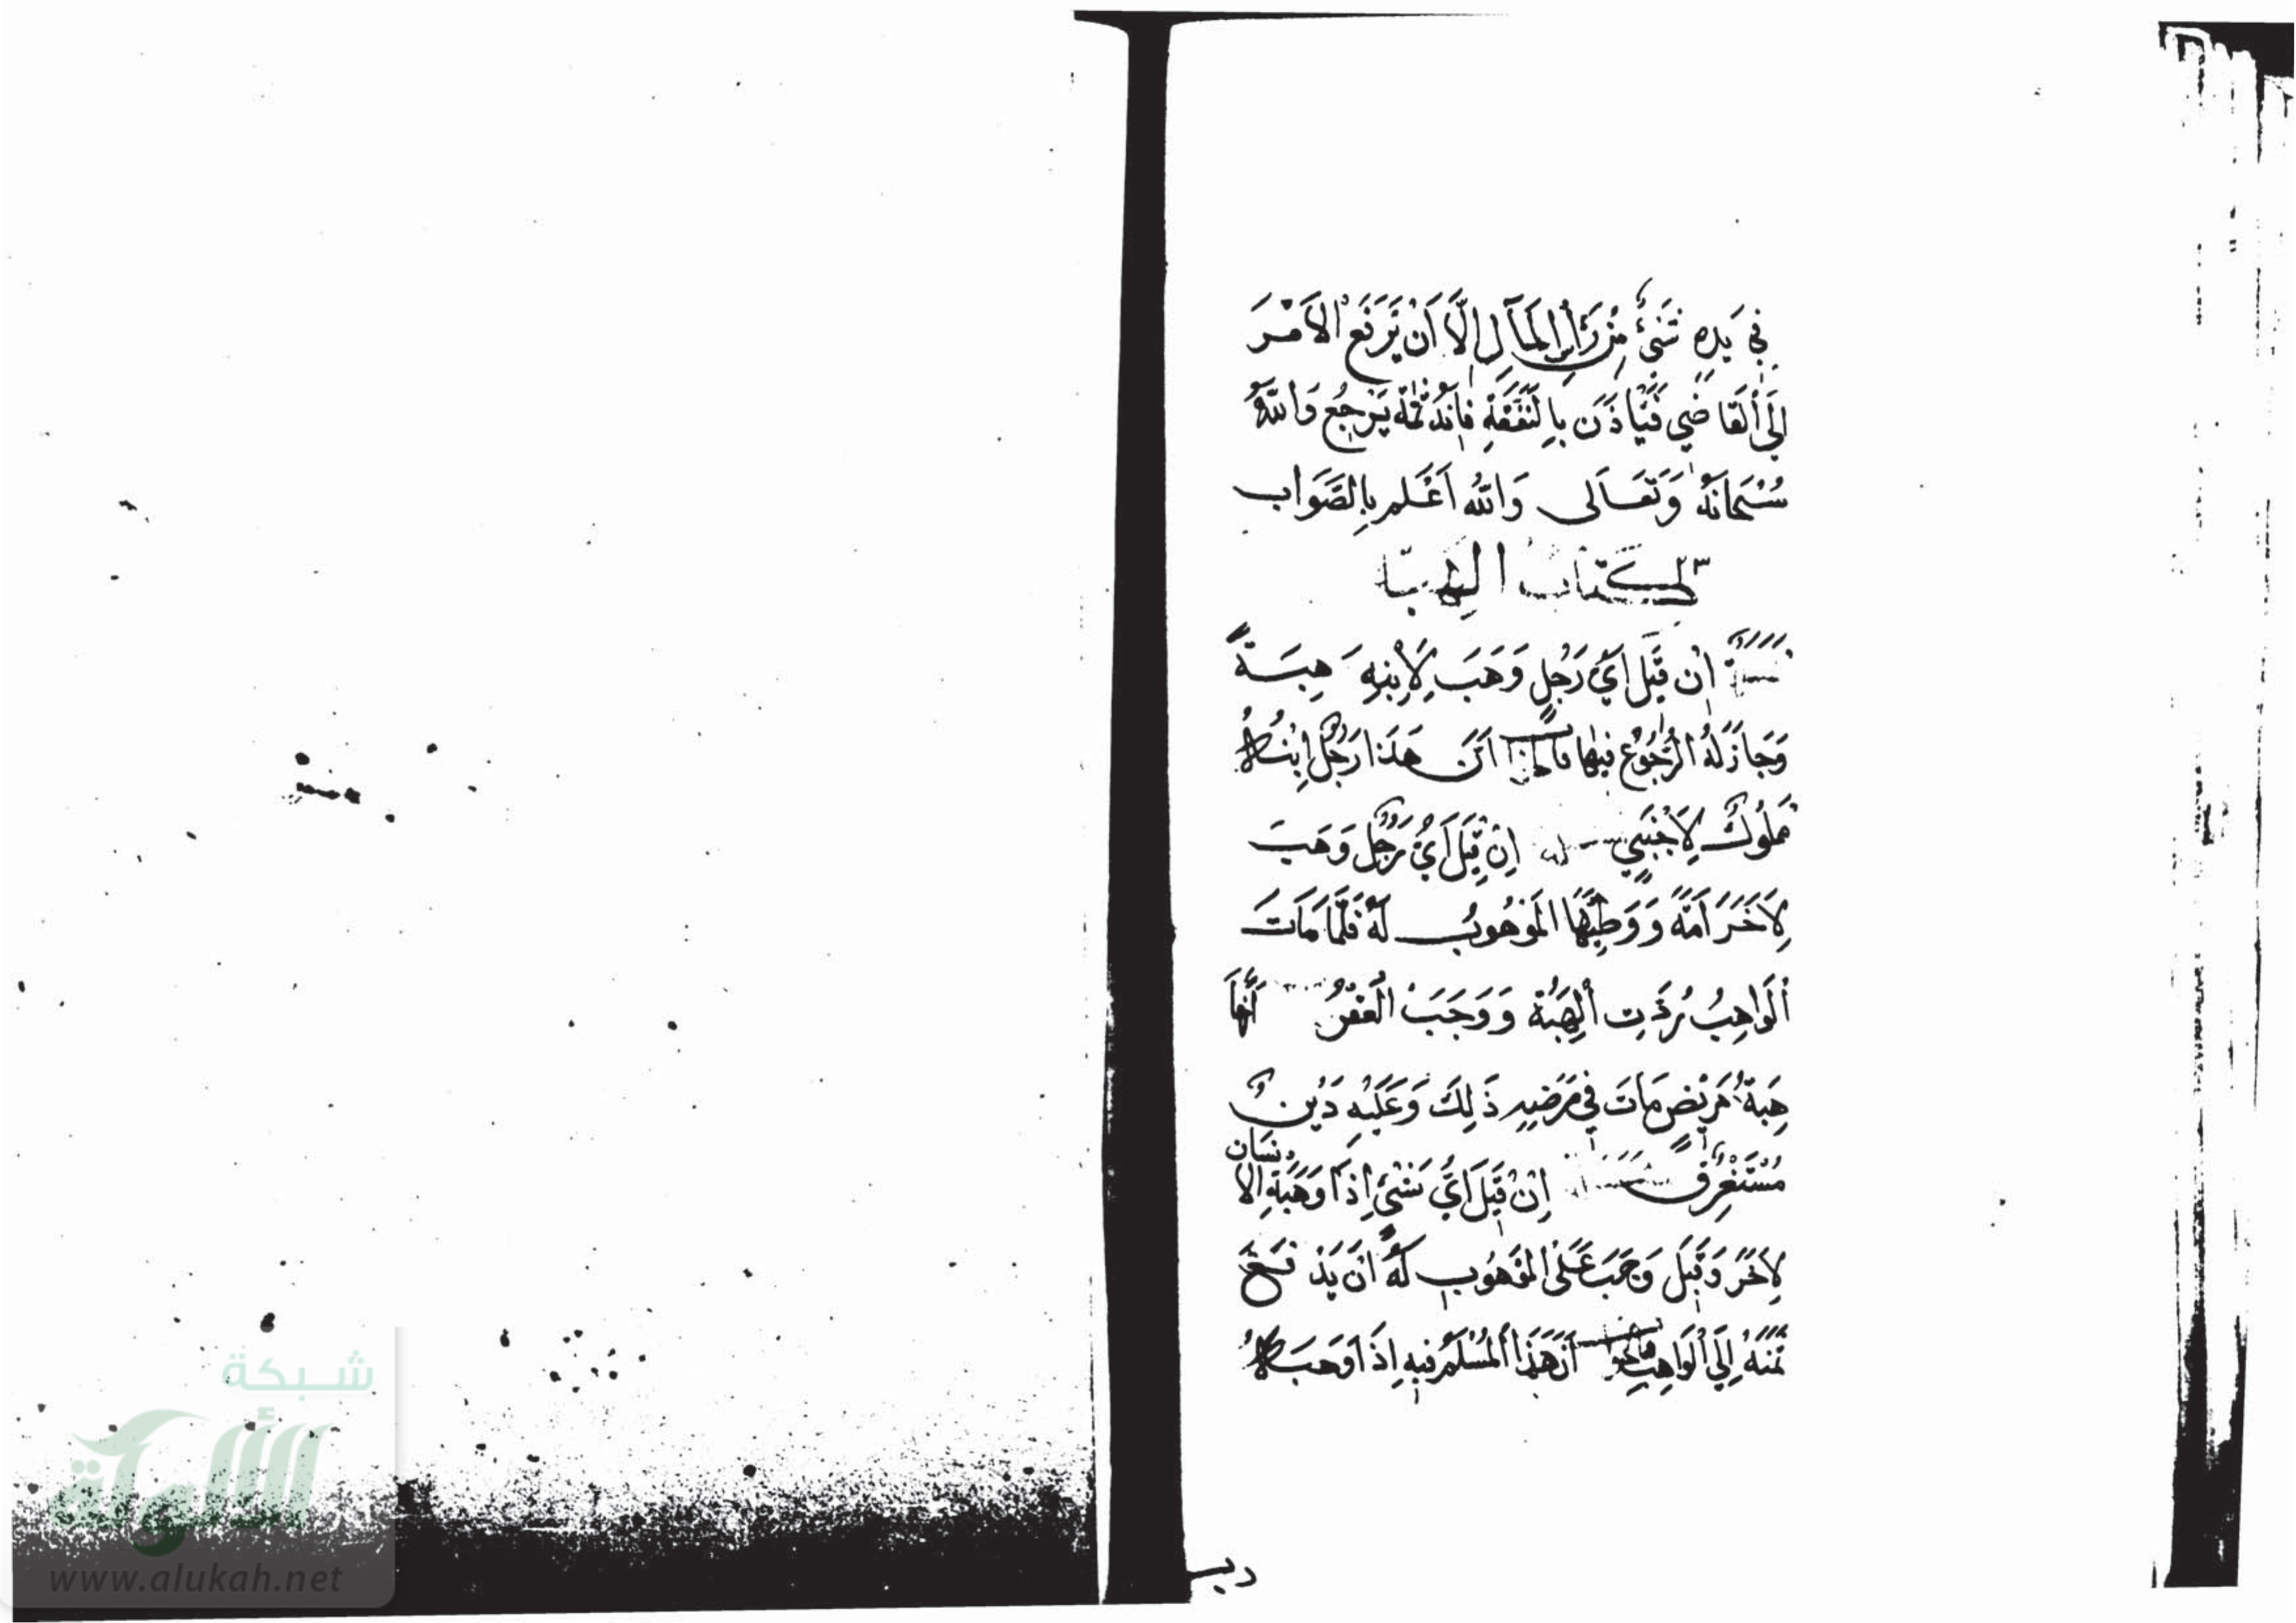 فِي يَدِهِ شَيْءٌ مِنْ رَأْسِ الْمَالِ إِلَّا أَنْ يَرْفَعَ الْأَمْرَ
إِلَى الْقَاضِي فَيَأْذَنَ بِالنَّفَقَةِ فَإِنَّهُ ثَمَّةَ يَرْجِعُ وَاللَّهُ
سُبْحَانَهُ وَتَعَالَى وَاللَّهُ أَعْلَمُ بِالصَّوَابِ
كتاب الهبة
إِنْ قِيلَ أَيُّ رَجُلٍ وَهَبَ لِابْنِهِ هِبَةً
وَجَازَ لَهُ الرُّجُوعُ فِيهَا فَالجواب أَنَّ هَذَا رَجُلٌ ابْنُهُ
مَمْلُوكٌ لِأَجْنَبِيٍّ إِنْ قِيلَ أَيُّ رَجُلٍ وَهَبَ
لِآخَرَ أَمَةً وَوَطِئَهَا الْمَوْهُوبُ لَهُ فَلَمَّا مَاتَ
الْوَاهِبُ رُدَّتِ الْهِبَةُ وَوَجَبَ الْعُقْرُ أَنَّهَا
هِبَةُ مَرِيضٍ مَاتَ فِي مَرَضِهِ ذَلِكَ وَعَلَيْهِ دَيْنٌ
مُسْتَغْرِقٌ إِنْ قِيلَ أَيُّ شَيْءٍ إِذَا وَهَبَهُ الْإِنسان
لِآخَرَ وَقَبِلَ وَجَبَ عَلَى الْمَوْهُوبِ لَهُ أَنْ يَدْفَعَ
ثَمَنَهُ إِلَى الْوَاهِبِ فالجواب أَنَّ هَذَا الْمُسْلَمُ فِيهِ إِذَا وَهَبَهُ
شبكة
الألوكة
www.alukah.net